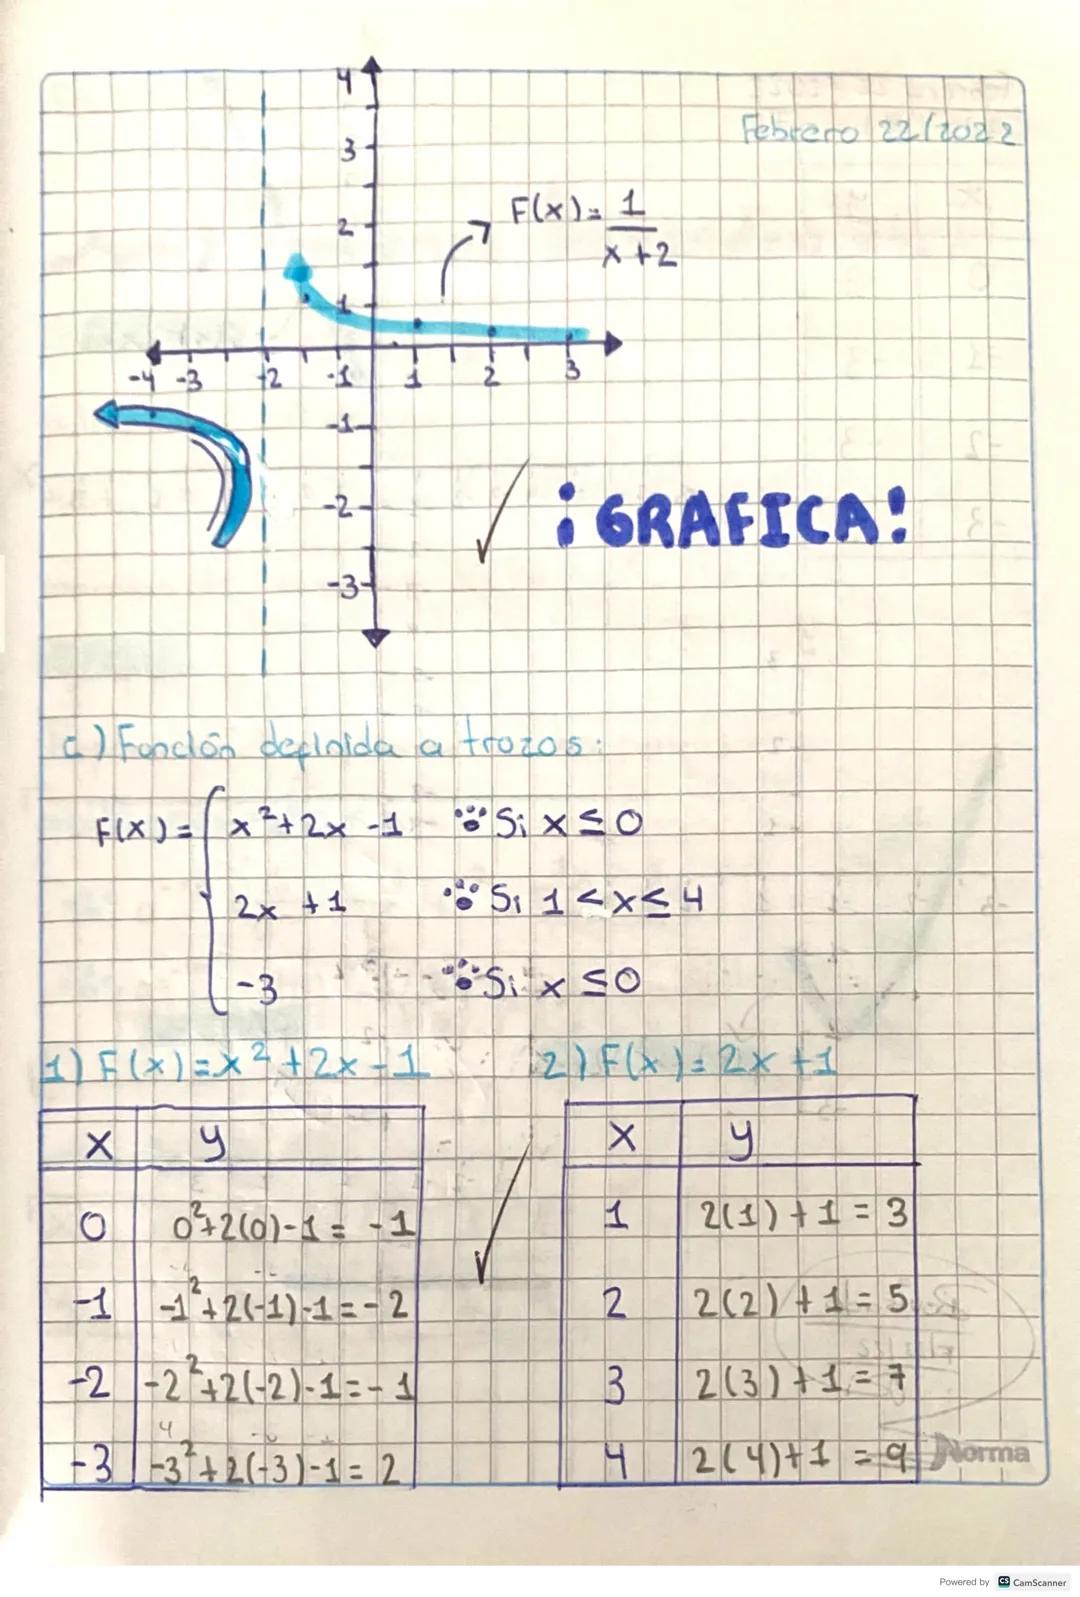 Febrero 22/2022
4
3
2
1
F(x)= 1
x+2
-4 -3 -2 -1 1 2 3
-1
-2
-3
¡GRAFICA!
c) Función definida a trozos:
F(x)= x²+2x-1 Si x≤0
2x+1 Si 1<x≤4
-3 Si x≤0
1) F(x)=x²+2x-1 2) F(x)=2x+1
x y x y
0 0²+2(0)-1=-1 1 2(1)+1=3
-1 -1²+2(-1)-1=-2 2 2(2)+1=5
-2 -2²+2(-2)-1=-1 3 2(3)+1=7
4
-3 -3²+2(-3)-1=2 4 2(4)+1=9
Norma
Powered by CS CamScanner